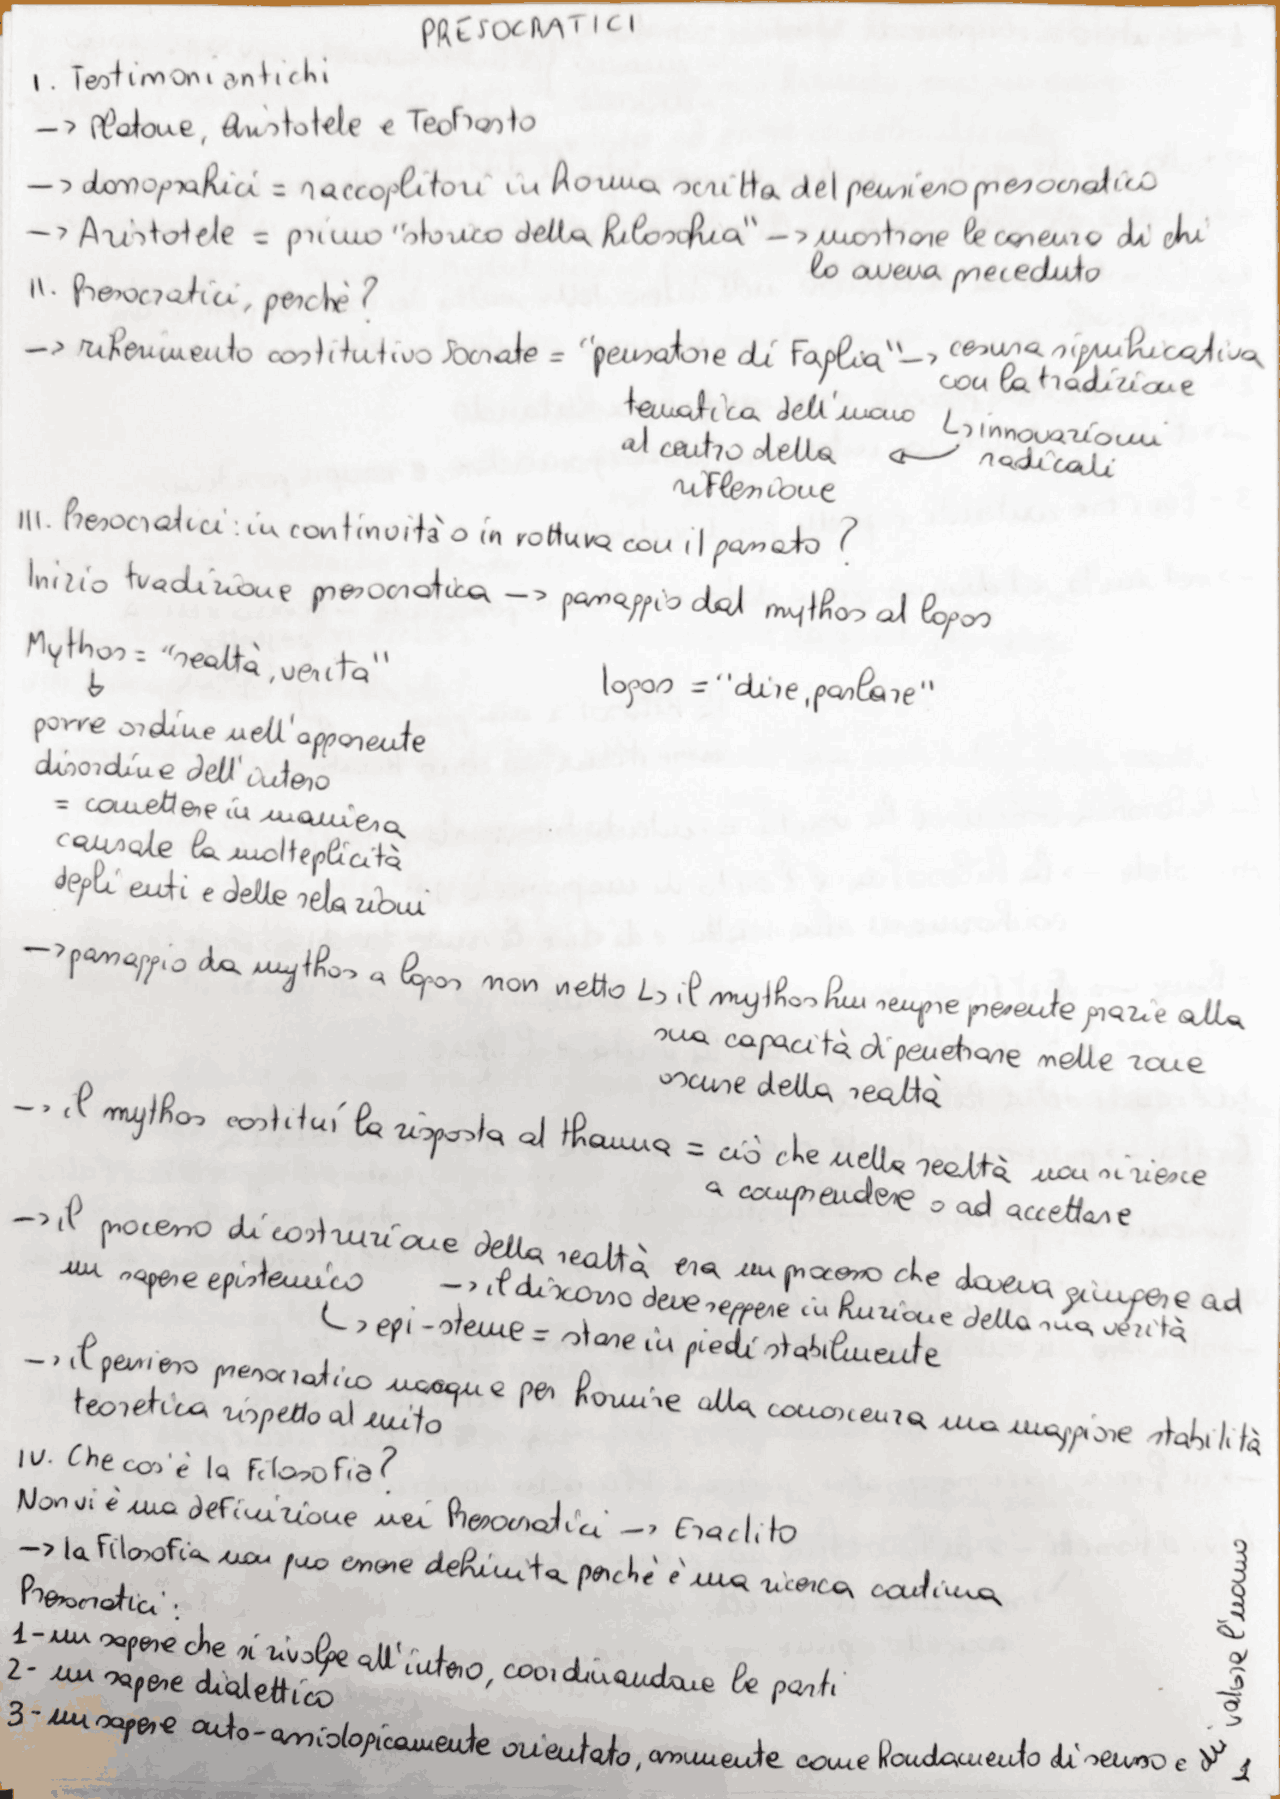 PRESOCRATICI
I. Testimoni antichi
-> Platone, Aristotele e Teofrasto
-> doxografici = raccoglitori in forma scritta del pensiero presocratico
-> Aristotele = primo "storico della filosofia" -> mostrare le carenze di chi
lo aveva preceduto
II. Presocratici, perchè?
-> riferimento costitutivo Socrate = "pensatore di Faglia" -> cesura significativa
con la tradizione
↳ innovazioni
radicali
tematica dell'uomo
al centro della
riflessione
III. Presocratici: in continuità o in rottura con il passato?
Inizio tradizione presocratica -> passaggio dal mythos al logos
Mythos = "realtà, verità"
logos = "dire, parlare"
porre ordine nell'apparente
disordine dell'intero
= connettere in maniera
causale la molteplicità
degli enti e delle relazioni
-> passaggio da mythos a logos non netto ↳ il mythos fu sempre presente grazie alla
sua capacità di penetrare nelle zone
oscure della realtà
-> il mythos costituí la risposta al thauma = ciò che nella realtà non si riesce
a comprendere o ad accettare
-> il processo di costruzione della realtà era un processo che doveva giungere ad
un sapere epistemico -> il discorso deve reggere in funzione della sua verità
↳ epi-steme = stare in piedi stabilmente
-> il pensiero presocratico nacque per fornire alla conoscenza una maggiore stabilità
teoretica rispetto al mito
IV. Che cos'è la Filosofia?
Non vi è una definizione nei Presocratici -> Eraclito
-> la Filosofia non puo essere definita perchè è una ricerca continua
Presocratici:
1- un sapere che si rivolge all'intero, coordinandone le parti
2- un sapere dialettico
3- un sapere onto-assiologicamente orientato, assumente come fondamento di senso e di valore l'uomo
1